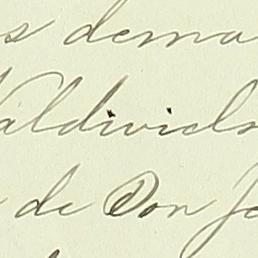 s dema
Valdiviels
de Don Jo